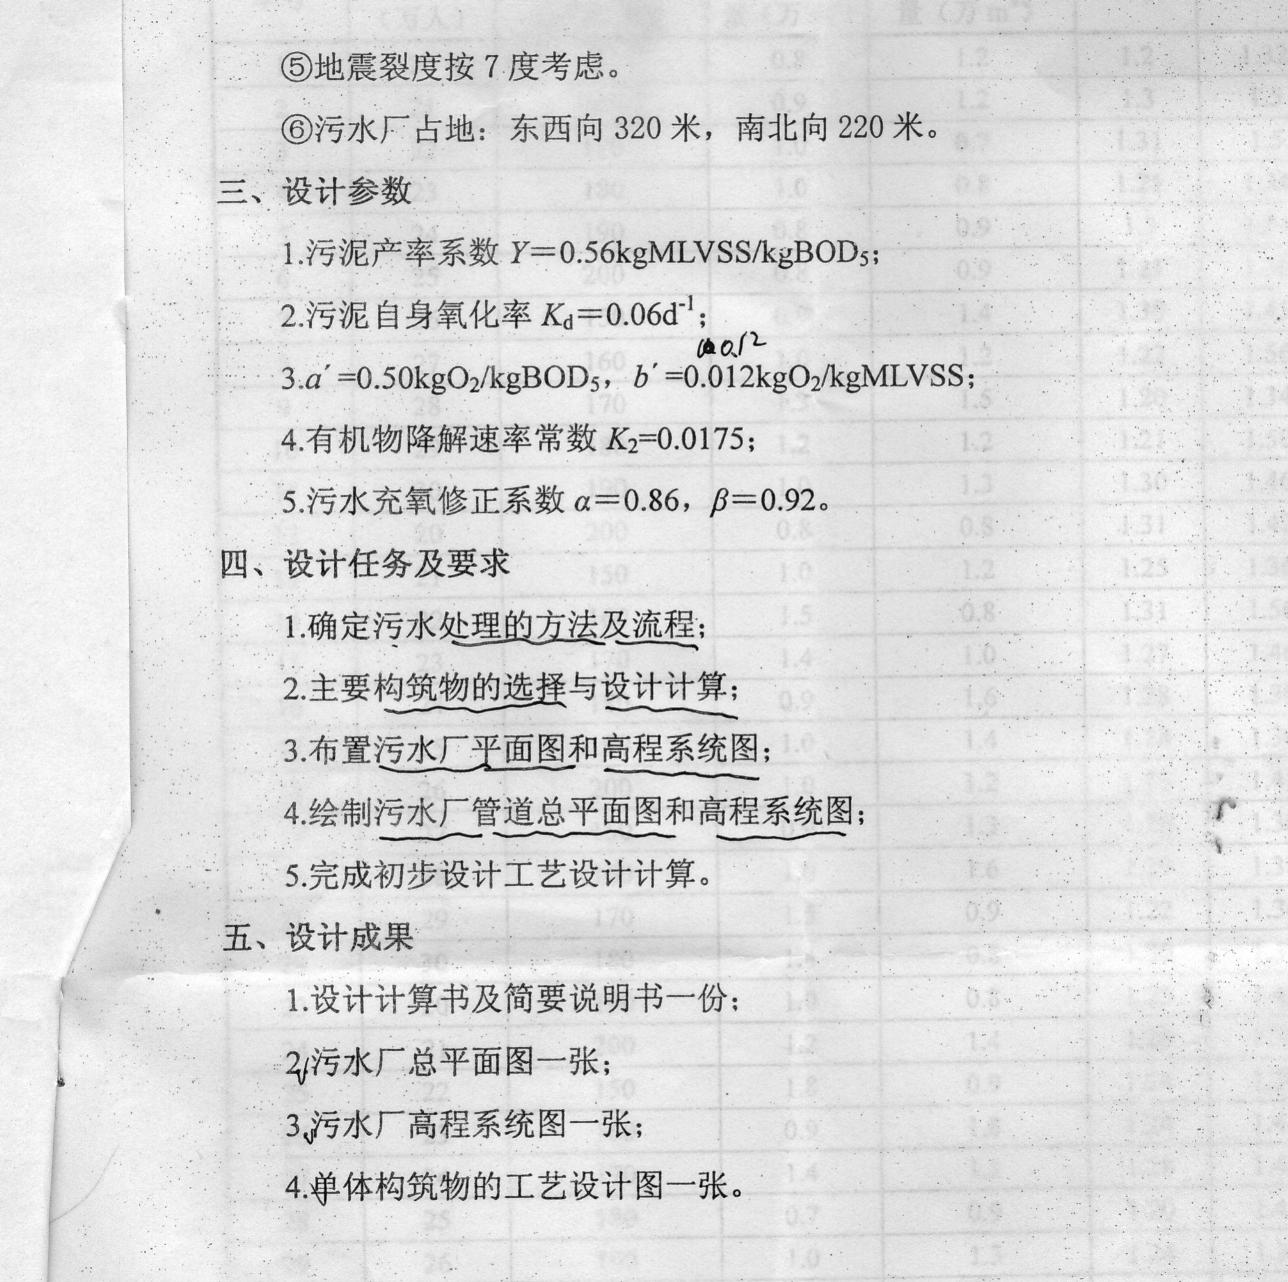 ⑤地震裂度按 7 度考虑。
⑥污水厂占地：东西向 320 米，南北向 220 米。
三、设计参数
1.污泥产率系数 Y＝0.56kgMLVSS/kgBOD₅；
2.污泥自身氧化率 K_d＝0.06d⁻¹；
0.12
3.a′=0.50kgO₂/kgBOD₅，b′=0.012kgO₂/kgMLVSS；
4.有机物降解速率常数 K₂=0.0175；
5.污水充氧修正系数 α＝0.86，β＝0.92。
四、设计任务及要求
1.确定污水处理的方法及流程；
2.主要构筑物的选择与设计计算；
3.布置污水厂平面图和高程系统图；
4.绘制污水厂管道总平面图和高程系统图；
5.完成初步设计工艺设计计算。
五、设计成果
1.设计计算书及简要说明书一份；
2.污水厂总平面图一张；
3.污水厂高程系统图一张；
4.单体构筑物的工艺设计图一张。